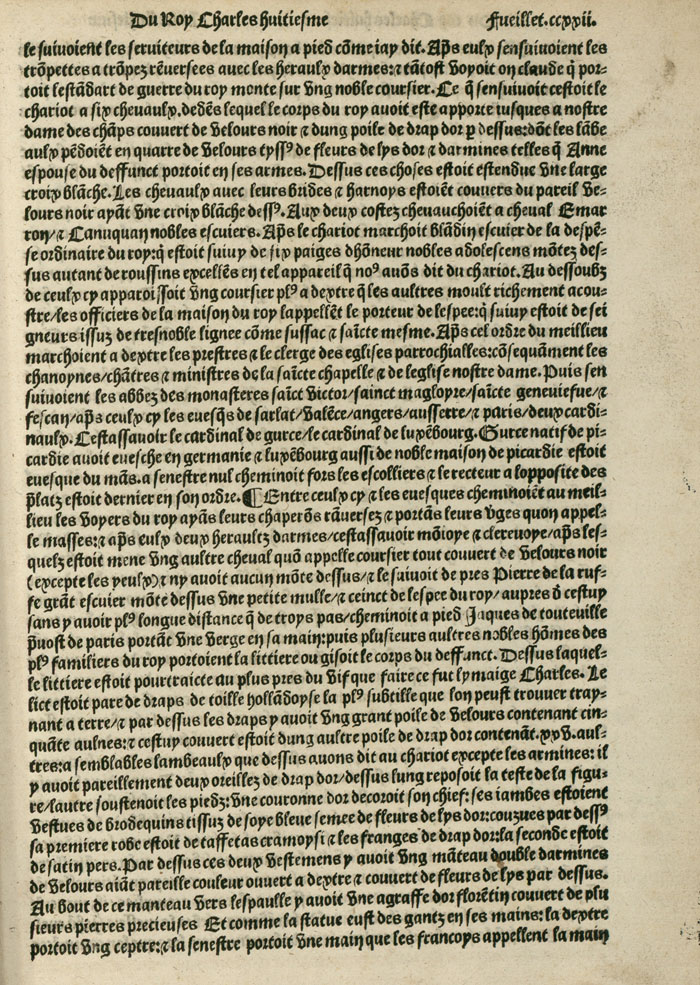 Du Roy Charles huitiesme Fueillet. ccxxii.
le suiuoient les seruiteurs de la maison a pied cõme iay dit. Aps̃ eulx sensuiuoient les
trõpettes a trõpez rẽuersees avec les heraulx darmes: ⁊ tãtost voyoit on claude q̃ por-
toit lestãdart de guerre du roy monte sur vng noble coursier. Ce q̃ sensuiuoit cestoit le
chariot a six cheuaulx. dedẽs lequel le corps du roy auoit este apporte iusques a nostre
dame des chãps couuert de velours noir ⁊ dung poile de drap dor ꝑ dessus: dõt les lãbe
aulx pẽdoiẽt en quarre de velours tyssꝰ de fleurs de lys dor ⁊ darmines telles q̃ Anne
espouse du deffunct portoit en ses armes. Dessus ces choses estoit estendue vne large
croix blãche. Les cheuaulx avec leurs brides ⁊ harnoys estoiẽt couuers du pareil ve-
lours noir ayãt vne croix blãche dessꝰ. Aux deux costez cheuauchoiẽt a cheual Emar
ron/ ⁊ Canuquan nobles escuiers. Aps̃ le chariot marchoit blãdin escuier de la despẽ-
se ordinaire du roy: q̃ estoit suiuy de six paiges dhõneur nobles adolescens mõtez des-
sus autant de roussins excellẽs en tel appareil q̃ noꝰ auõs dit du chariot. Au dessoubz
de ceulx cy apparoissoit vng coursier plꝰ a dextre q̃ les aultres moult richement acou-
stre/les officiers de la maison du roy lappellẽt le porteur de lespee: q̃ suiuy estoit de sei
gneurs issuz de tresnoble lignee cõme sussac ⁊ saĩcte mesme. Aps̃ cel ordre du meillieu
marchoient a dextre les prestres ⁊ le clerge des eglises parrochialles: cõsequãment les
chanoynes/chãtres ⁊ ministres de la saĩcte chapelle ⁊ de leglise nostre dame. Puis sen
suiuoient les abbez des monasteres saĩct victor/sainct magloyre/saĩcte geneuiefue/⁊
fescan/aps̃ ceulx cy les euesq̃s de sarlat/valẽce/angers/ausserre/⁊ paris/deux cardi-
naulx. Cestassauoir le cardinal de gurce/le cardinal de luxẽbourg. Gurce natif de pi-
cardie auoit euesche en germanie ⁊ luxẽbourg aussi de noble maison de picardie estoit
euesque du mãs. a senestre nul cheminoit fors les escolliers ⁊ le recteur a lopposite des
p̃latz estoit dernier en son ordre. ¶Entre ceulx cy ⁊ les euesques cheminoiẽt au meil-
lieu les voyers du roy ayãs leurs chaperõs rẽuersez ⁊ portãs leurs v̾ges quon appel-
le masses: ⁊ aps̃ eulx deux heraultz darmes/cestassauoir mõioye ⁊ clereuoye/aps̃ les-
quelz estoit mene vng aultre cheual quõ appelle coursier tout couuert de velours noir
(excepte les yeulx) ⁊ ny auoit aucun mõte dessus/⁊ le suiuoit de pres Pierre de la ruf-
fe grãt escuier mõte dessus vne petite mulle/⁊ ceinct de lespee du roy/aupres d̃ cestuy
sans y auoir plꝰ longue distance q̃ de troys pas/cheminoit a pied Jaques de touteuille
p̃uost de paris portãt vne verge en sa main: puis plusieurs aultres nobles hõmes des
plꝰ familiers du roy portoient la littiere ou gisoit le corps du deffunct. Dessus laquel-
le littiere estoit pourtraicte au plus pres du vif que faire ce fut lymaige Charles. Le
lict estoit pare de draps de toille hollãdoyse la plꝰ subtille que lon peust trouuer tray-
nant a terre/⁊ par dessus les draps y auoit vng grant poile de velours contenant cin-
quãte aulnes: ⁊ cestuy couuert estoit dung aultre poile de drap dor contenãt. xxv. aul-
tres: a semblables lambeaulx que dessus auons dit au chariot excepte les armines: il
y auoit pareillement deux oreillez de drap dor/dessus lung reposoit la teste de la figu-
re/lautre soustenoit les piedz: vne couronne dor decoroit son chief: ses iambes estoient
vestues de brodequins tissuz de soye bleue semee de fleurs de lys dor: couzues par dessꝰ
sa premiere robe estoit de taffetas cramoysi ⁊ les franges de drap dor: la seconde estoit
de satin pers. Par dessus ces deux vestemens y auoit vng mãteau double darmines
de velours aiãt pareille couleur ouuert a dextre ⁊ couuert de fleurs de lys par dessus.
Au bout de ce manteau vers lespaulle y auoit vne agraffe dor florẽtin couuert de plu
sieurs pierres precieuses Et comme la statue eust des gantz en ses mains: la dextre
portoit vng ceptre: ⁊ la senestre portoit vne main que les francoys appellent la main